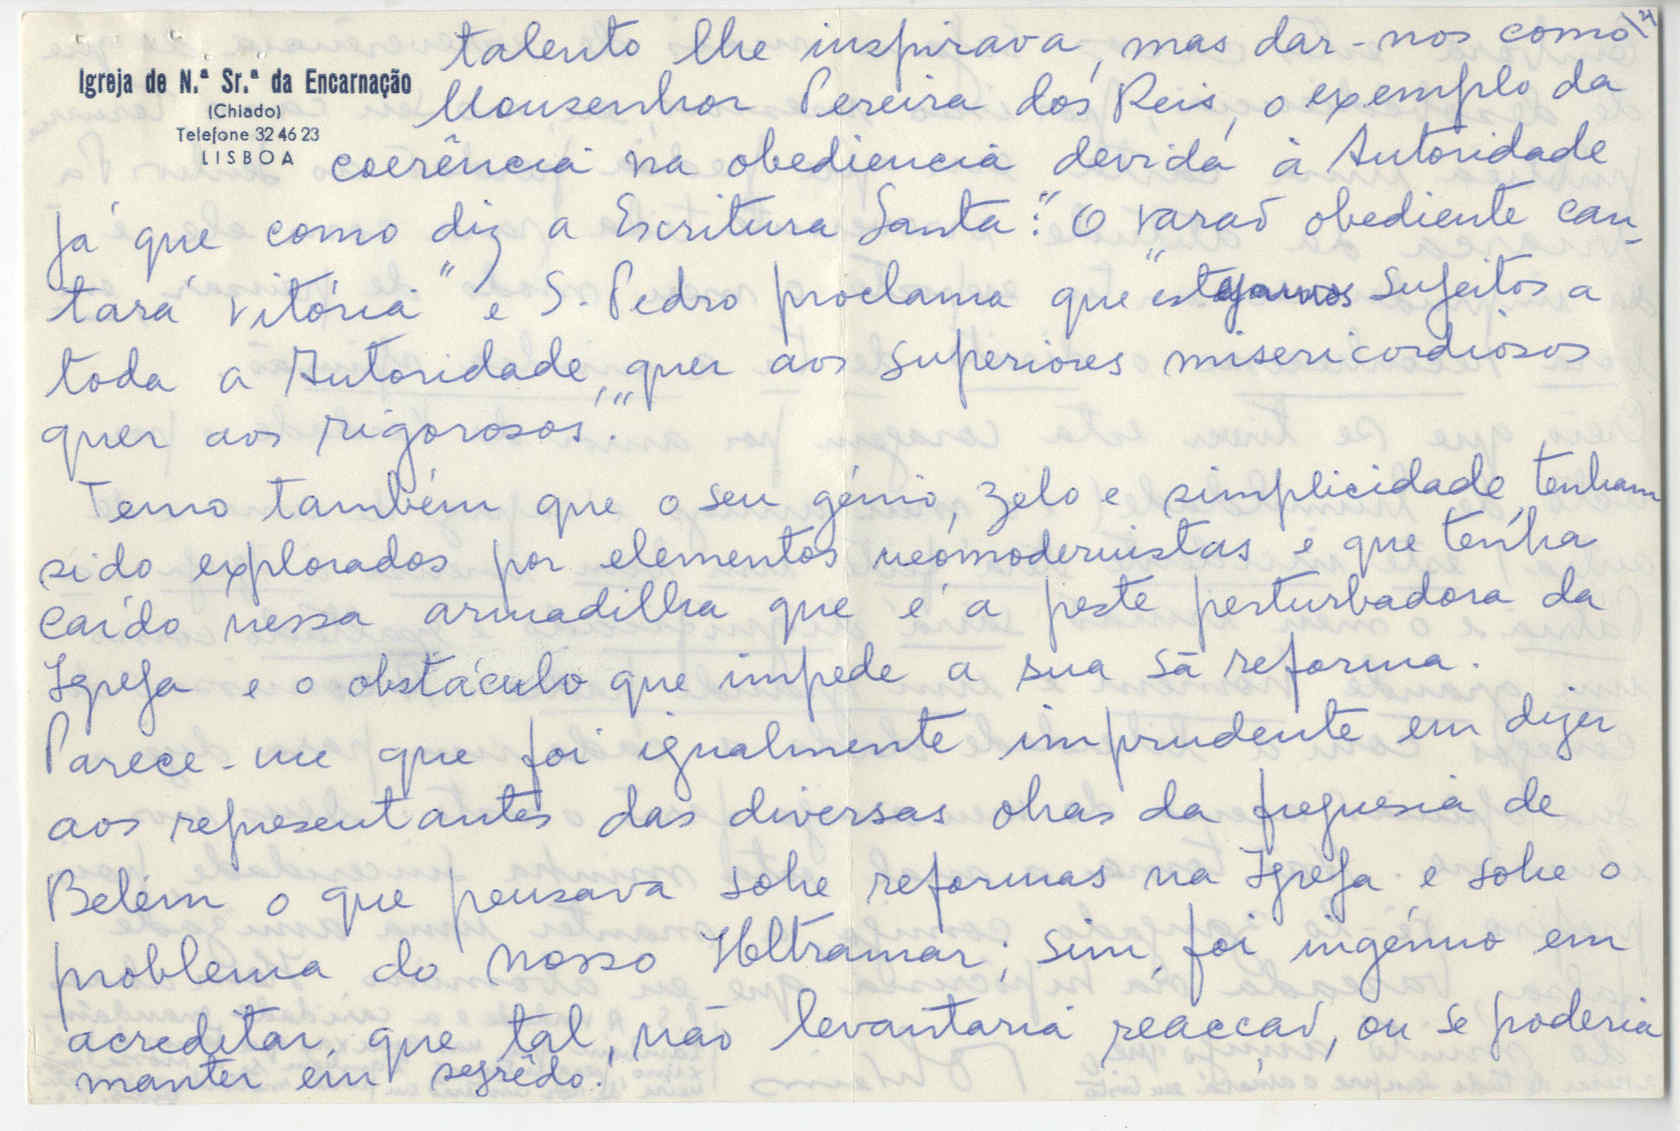 21
talento lhe inspirava, mas dar-nos como
Igreja de N.ª Sr.ª da Encarnação
(Chiado)
Telefone 32 46 23
LISBOA
Monsenhor Pereira dos Reis, o exemplo da
coerência na obediencia devida à Autoridade
já que como diz a Escritura Santa: "O varaõ obediente can-
tará vitória" e S. Pedro proclama que "estejamos sujeitos a
toda a Autoridade, quer aos superiores misericordiosos
quer aos rigorosos."
Temo também que o seu génio, zelo e simplicidade, tenham
sido explorados por elementos neomodernistas e que tenha
caído nessa armadilha que é a peste perturbadora da
Igreja e o obstáculo que impede a sua sã reforma.
Parece-me que foi igualmente imprudente em dizer
aos representantes das diversas obras da freguesia de
Belém o que pensava sobre reformas na Igreja e sobre o
problema do nosso Ultramar; sim, foi ingénuo em
acreditar, que tal, não levantaria reaccaõ, ou se poderia
manter em segrêdo.!